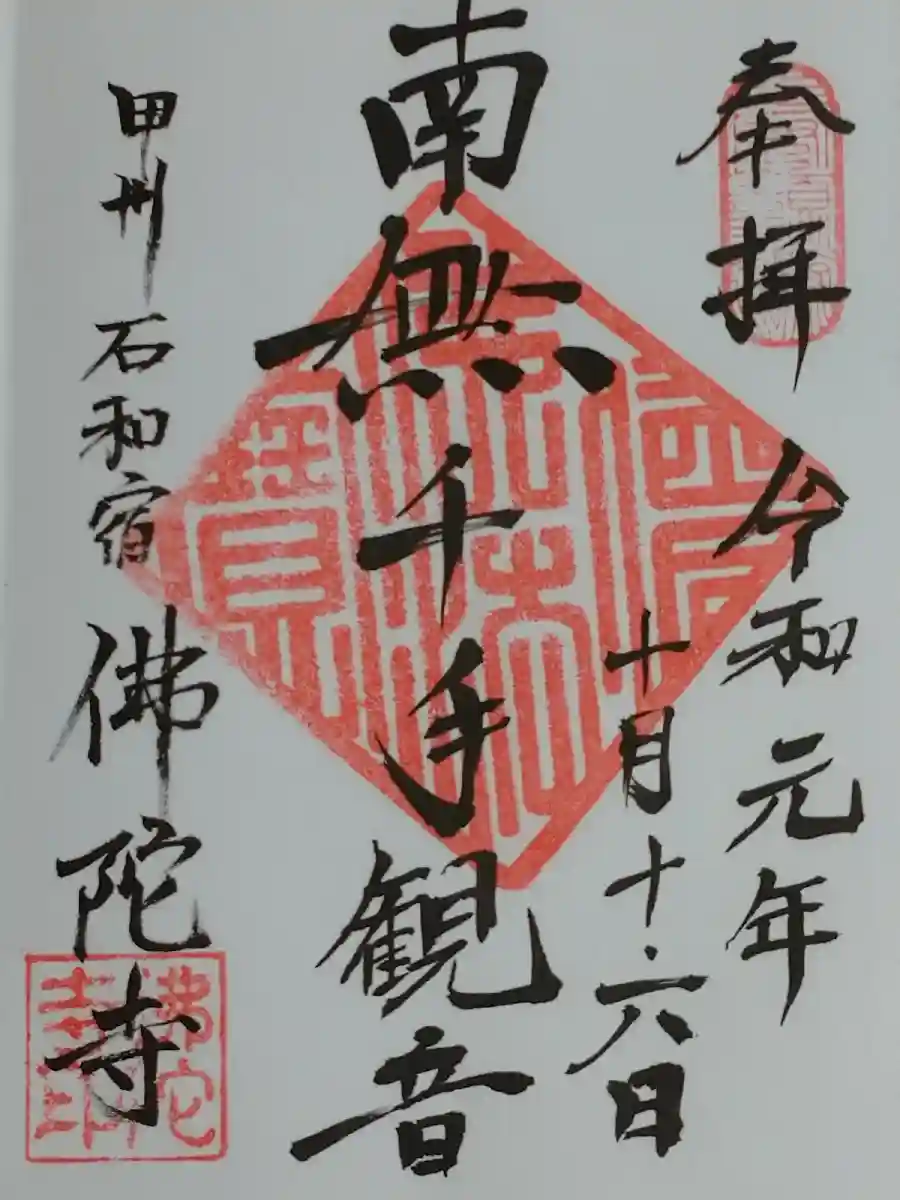 奉拝
令和元年
十月十六日
南無千手観音
甲州石和宿佛陀寺
佛陀寺印